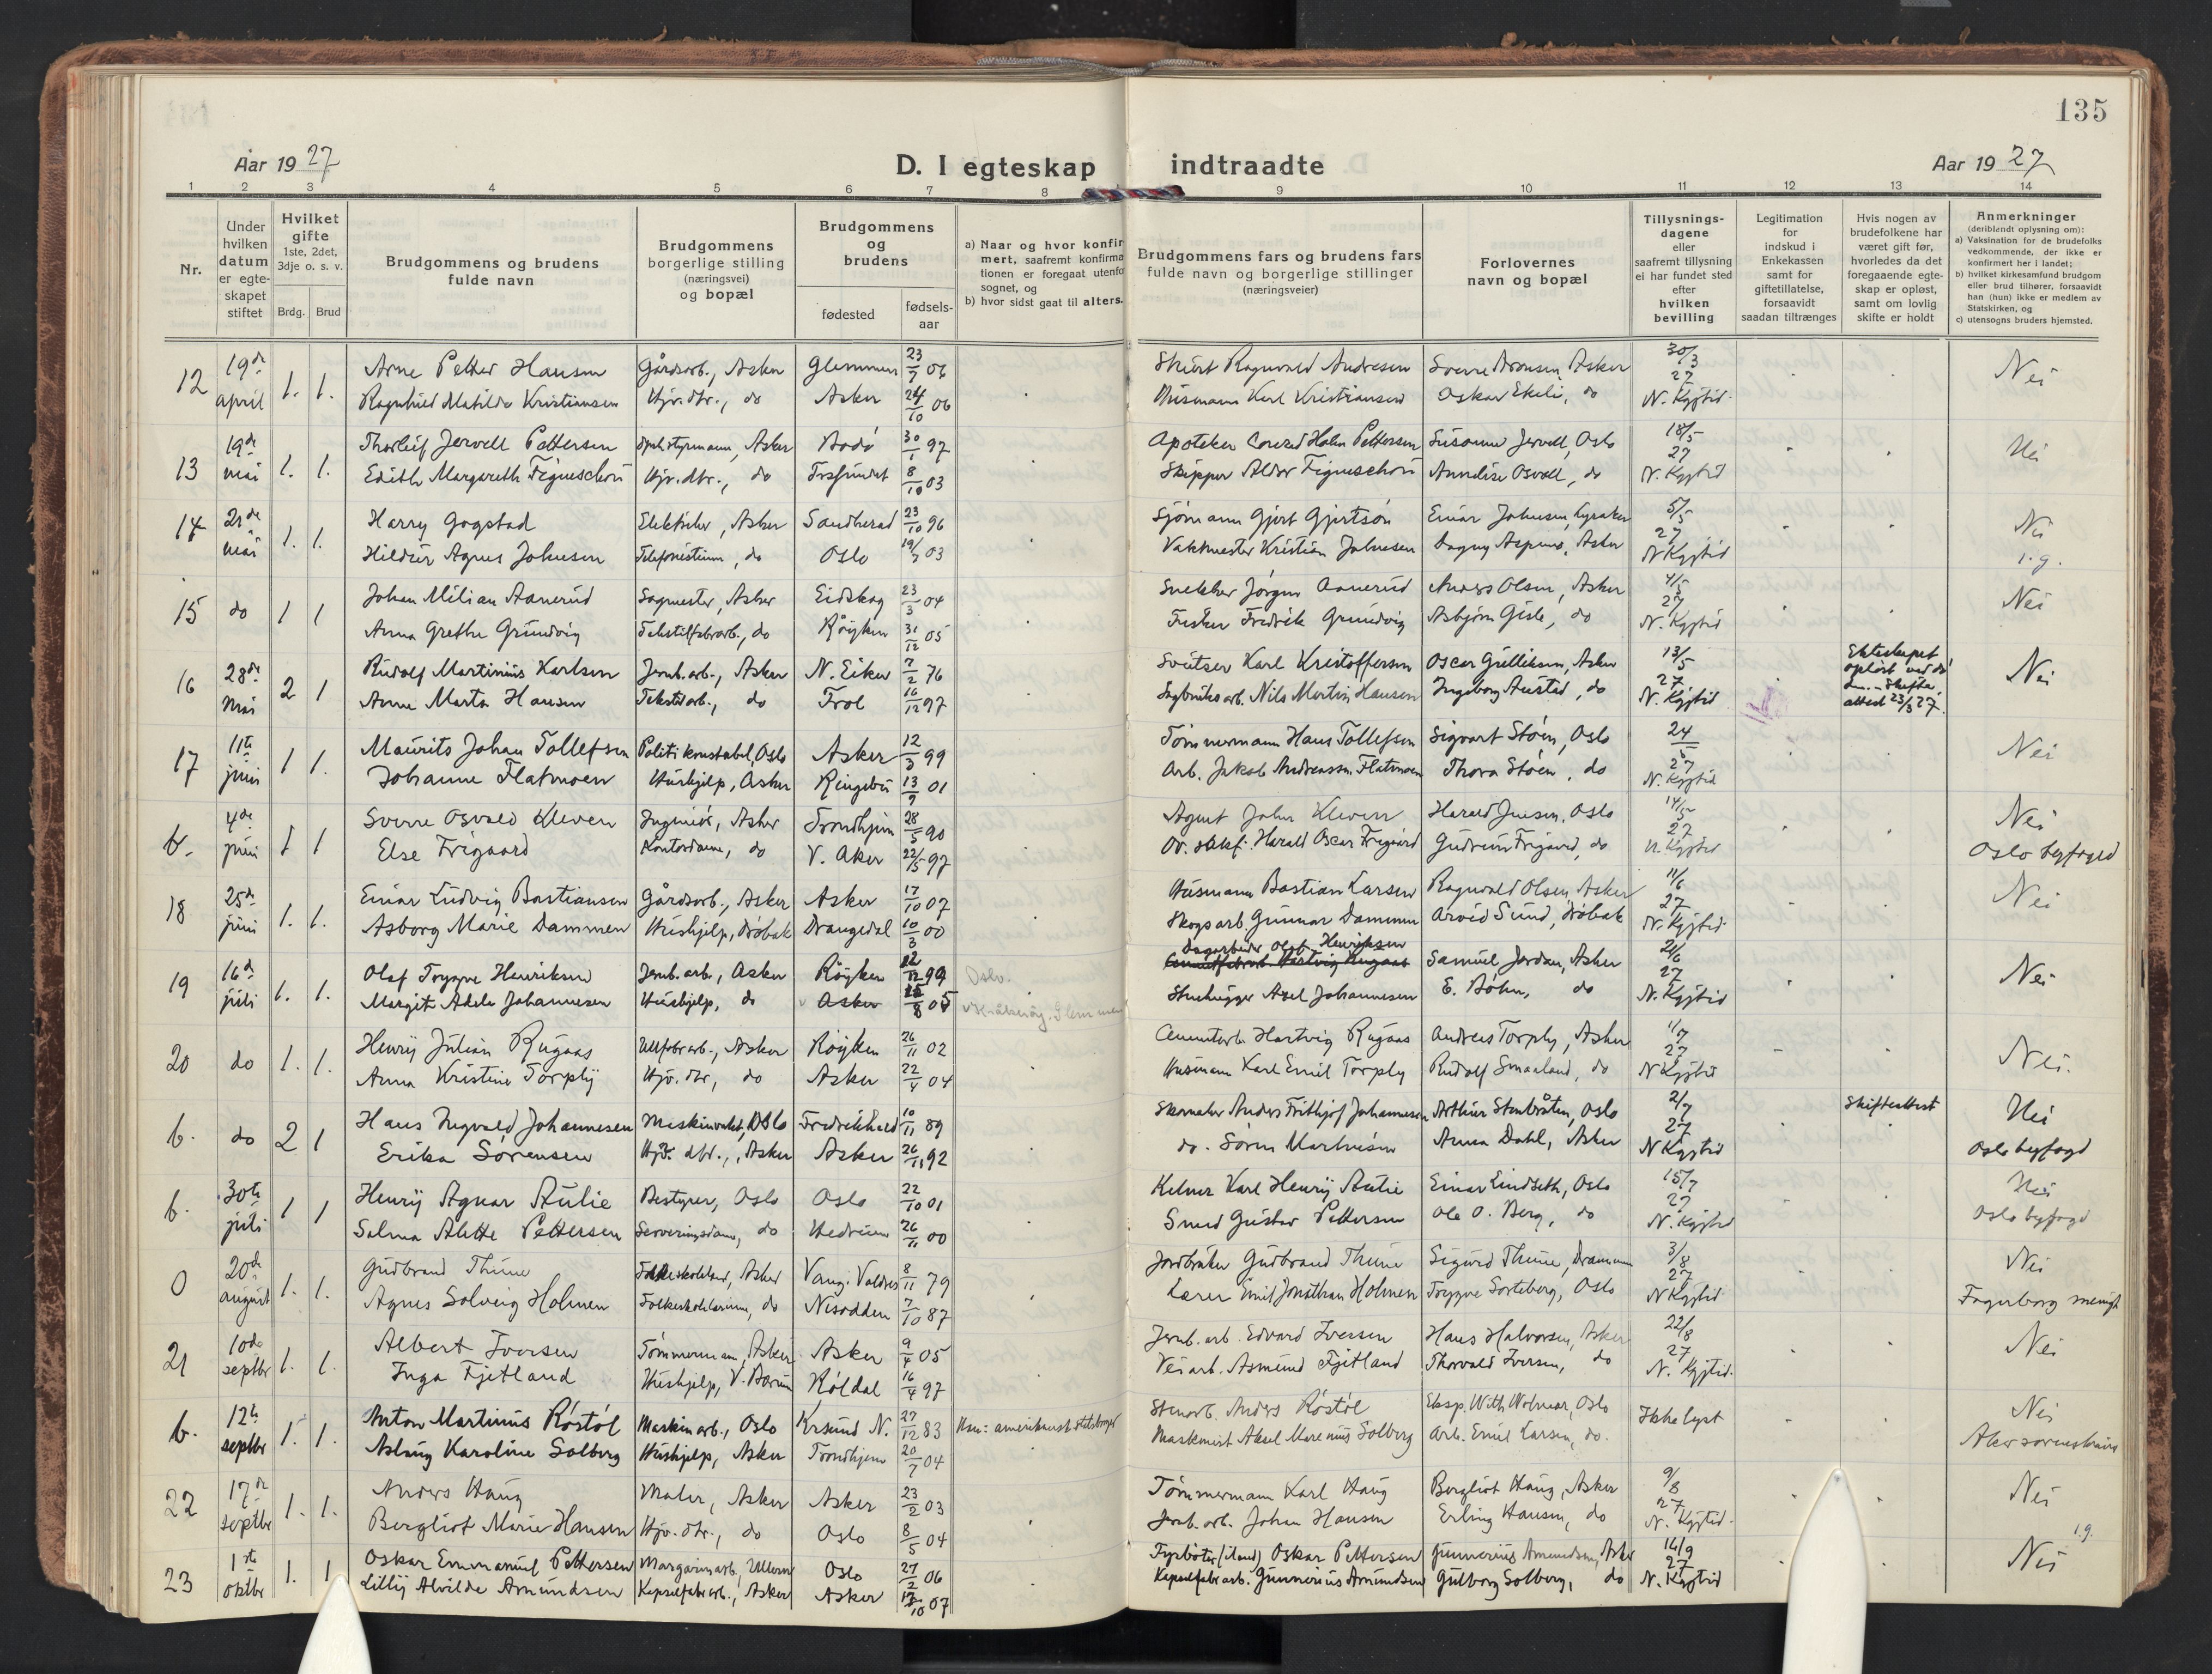 135
Aar 1927 D. I egteskap indtraadte Aar 1927
1 2 3 4 5 6 7 8 9 10 11 12 13 14
Nr.
Under hvilken datum er egteskapet stiftet
Hvilket gifte 1ste, 2det, 3dje o. s. v. Brdg. Brud
Brudgommens og brudens fulde navn
Brudgommens borgerlige stilling (næringsvei) og bopæl
Brudgommens og brudens fødested fødsels-aar
a) Naar og hvor konfir
mert, saafremt konfirma
tionen er foregaat utenfo
sognet, og
b) hvor sidst gaat til alters.
Brudgommens fars og brudens fars fulde navn og borgerlige stillinger (næringsveier)
Forlovernes navn og bopæl
Tillysnings-dagene eller saafremt tillysning ei har fundet sted efter hvilken bevilling
Legitimation for indskud i Enkekassen samt for giftetillatelse, forsaavidt saadan tiltrænges
Hvis nogen av brudefolkene har været gift før, hvorledes da det foregaaende egte-skap er opløst, samt om lovlig skifte er holdt
Anmerkninger (deriblandt oplysning om):
a) Vaksination for de brudefolks vedkommende, der ikke er konfirmert her i landet;
b) hvilket kirkesamfund brudgom eller brud tilhører, forsaavidt han (hun) ikke er medlem av Statskirken, og
c) utensogns bruders hjemsted.
12 19de april 1. 1. Arne Petter Hansen Gårdsarb., Asker Glemmen 23/7 06 Ragnvald Andresen Sverre Aronsen, Asker 30/3 27 Nei
Ragnhild Matilde Kristiansen Hjv. dtr., do Asker 24/10 06 Karl Kristiansen Oskar Ekeli, do N. Kgjtid
13 19de mai 1. 1. Thorleif Jervell Pettersen Asker Bodö 30/1 97 Apoteker Conrad Holm Pettersen Susanne Jervell, Oslo 18/5 27 Nei
Edith Margareth Figueschou Hjv. dtr., do 8/10 03 Skipper Aldor Figueschou Annelise Osvoll, do N. Kgjtid
14 21de mai 1. 1. Harry Gogstad Elektriker, Asker Sandherad 23/10 96 Sjömann Gjert Gjertsön Einar Johnsen, Lysaker 5/5 27 Nei
Hildur Agnes Johnsen Telefonistinne, do Oslo 19/7 03 Vaktmester Kristian Johnsen Dagny Aspnes, Asker N Kgjtid i.g.
15 do 1 1 Johan Milian Aanerud Sagmester, Asker Eidskog 23/3 04 Snekker Jörgen Aanerud Anders Olsen, Asker 4/5 27 Nei
Anna Grethe Grundvig Tekstilfabrarb., do Röyken 31/12 05 Fisker Fredrik Grundvig Asbjörn Gisle, do N. Kgjtid
16 28de mai 2 1 Rudolf Martinius Karlsen Jernb. arb., Asker N. Eiker 7/2 76 Sveitser Karl Kristoffersen Oscar Gulliksen, Asker 13/5 27 Ekteskapet opløst ved skifte attest 23/3 27. Nei
Anne Marta Hansen Tekstilarb., do Frol 16/12 97 Sagbruksarb. Nils Martin Hansen Ingeborg Austad, do N. Kgjtid
17 11te juni 1 1. Maurits Johan Tollefsen Politikonstabel, Oslo Asker 12/3 99 Tömmermann Hans Tollefsen Sigvart Stöen, Oslo 24/5 27 Nei
Johanne Flatmoen Hushjelp, Asker Ringebu 13/9 01 Arb. Jakob Andreassen Flatmoen Thora Stöen, do N. Kgjtid
b. 4de juni 1 1 Sverre Osvald Kleven Ingeniör, Asker Trondhjem 28/5 90 Agent John Kleven Harald Jensen, Oslo 14/5 27 Nei
Else Frigaard Kontordame, do V. Aker 22/5 97 Harald Oscar Frigaard Gudrun Frigaard, do N. Kgjtid Oslo byfogd
18 25de juni 1. 1. Einar Ludvig Bastiansen Gårdsarb., Asker Asker 17/10 07 Husmann Bastian Larsen Ragnvald Olsen, Asker 11/6 27 Nei
Asborg Marie Dammen Hushjelp, Dröbak Drangedal 10/3 00 Skogsarb. Gunnar Dammen Arvid Sund, Dröbak N. Kgjtid
19 16de juli 1. 1. Olaf Trygve Henriksen Jernb. arb., Asker Röyken 22/12 99 Oslo. Dagarbeider Olaf Henriksen Samuel Jordan, Asker 21/6 27 Nei
Margit Adele Johannesen Hushjelp, do Asker 8 05 Stenhugger Axel Johannesen E. Böhn, do N. Kgjtid
20 do 1. 1. Henry Julian Rugaas Ullfabr arb., Asker Röyken 26/11 02 Cementarb. Hartvig Rugaas Andreas Torply, Asker 1/7 27 Nei.
Anna Kristine Torply Hjv. dtr, do Asker 22/4 04 Husmann Karl Emil Torply Rudolf Smaaland, do N Kgjtid
b. do 2 1 Hans Ingvald Johannesen Oslo Fredrikhald 10/11 89 Skomaker Anders Frithjof Johannesen Arthur Stenbråten, Oslo 2/7 27 Skifteattest Nei
Erika Sörensen Hjv. dtr., Asker Asker 26/11 92 do. Sören Martinsen Anna Dahl, Asker N Kgjtid Oslo byfogd
b. 30te juli 1 1 Henry Agnar Aulie Bestyrer, Oslo Oslo 22/10 01 Kelner Karl Henry Aulie Einar Lindseth, Oslo 15/7 27 Nei
Salma Alette Pettersen Serveringsdame, do Hedrum 26/11 00 Smed Gustav Pettersen Ole O. Berg, do N. Kgjtid Oslo byfogd
0 20de august 1. 1. Gudbrand Thune Asker Vang. Valdres 8/11 79 Jordbruker Gudbrand Thune Sigurd Thune, Drammen 3/8 27 Nei
Agnes Solveig Holmen Folkeskolelærerinne, do Nesodden 7/10 87 Lærer Emil Jonathan Holmen Trygve Sorteberg, Oslo N Kgjtid Fagerborg menigh
21 10de septbr 1. 1. Albert Iversen Tömmermann, Asker Asker 9/4 05 Jernb. arb. Edvard Iversen Hans Halvorsen, Asker 22/8 27 Nei
Inga Fjetland Hushjelp, V. Bærum Röldal 16/4 97 Veiarb. Asmund Fjetland Thorvald Iversen, do N. Kgjtid.
b. 12te septbr 1. 1. Anton Martinius Röstöl Maskinarb., Oslo Krsund N. 27/12 83 Han: amerikansk statsborger Stenarb. Anders Röstöl Eksp. With Wolmar, Oslo Ikke lyst Nei
Aslaug Karoline Solberg Hushjelp, Asker Trondhjem 20/7 04 Maskinist Aksel Marenius Solberg Arb. Emil Larsen, do.
22 17de septbr 1. 1. Anders Haug Maler, Asker Asker 23/2 03 Tömmermann Karl Haug Bergliot Haug, Asker 9/8 27 Nei
Bergliot Marie Hansen Hjv. dtr., do Oslo 8/5 04 Jernb. arb. Johan Hansen Erling Hansen, do N. Kgjtid. i.g.
23 1ste oktbr 1. 1 Oskar Emmanuel Pettersen Margarinarb. Ullern Oslo 27/2 06 Fyrböter (iland) Oskar Pettersen Gunnerius Amundsen, Asker 16/9 27 Nei
Lilly Alvilde Amundsen Kapselfabrarb., Asker Asker 10 07 Kapselfabr arb. Gunnerius Amundsen Gulborg Solberg, do N. Kgjtid